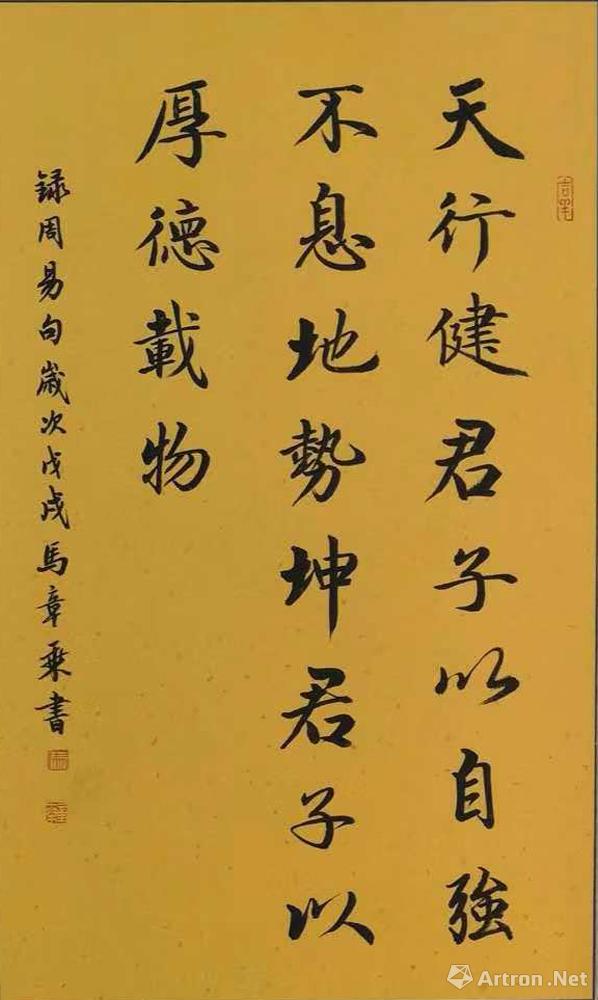 天行健君子以自強
不息地勢坤君子以
厚德載物
録周易句歲次戊戌馬章乘書
Artron.Net